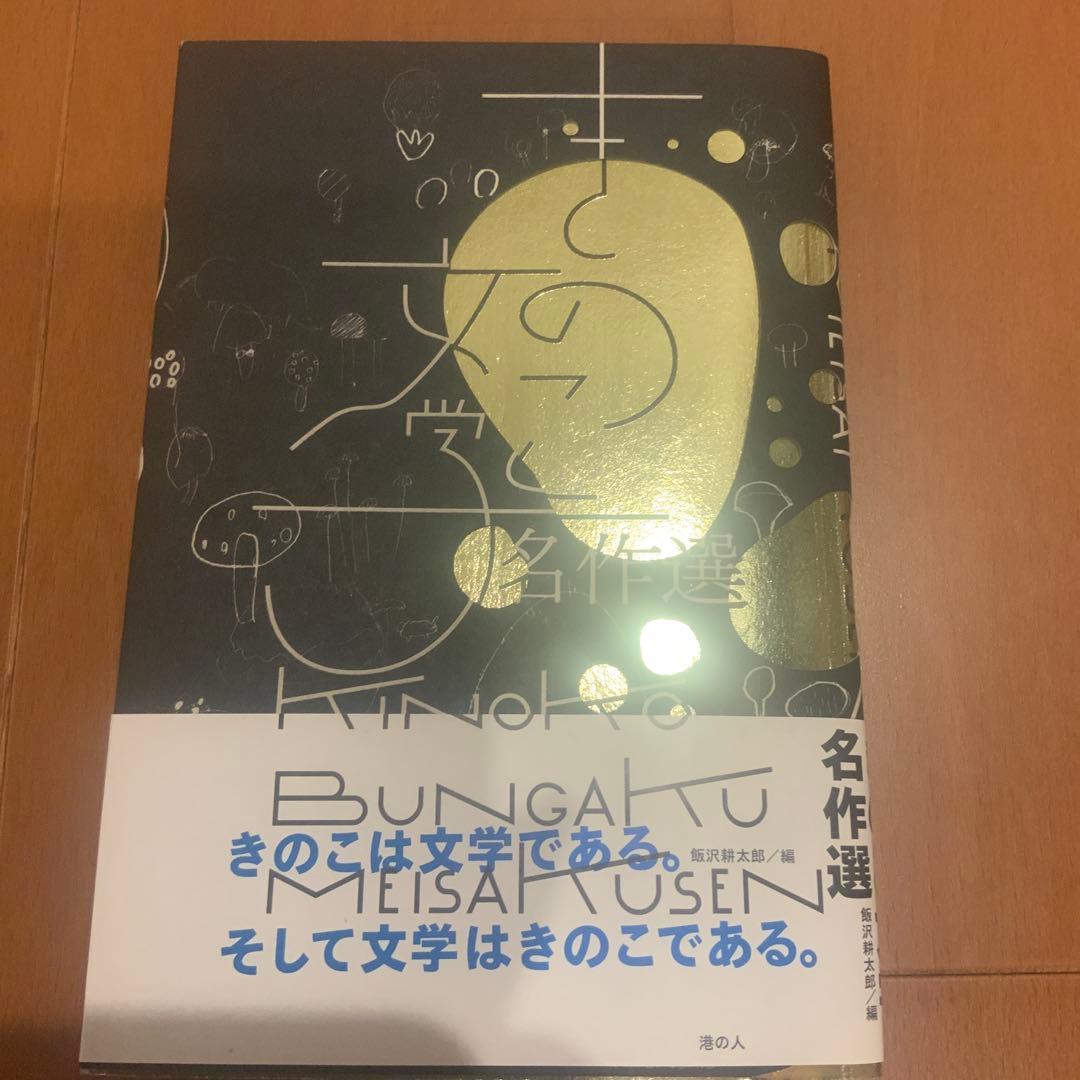 きのこ
文学
名作選
KINOKO
BUNGAKU
MEISAKUSEN
きのこは文学である。
飯沢耕太郎／編
そして文学はきのこである。
港の人
名作選
飯沢耕太郎／編